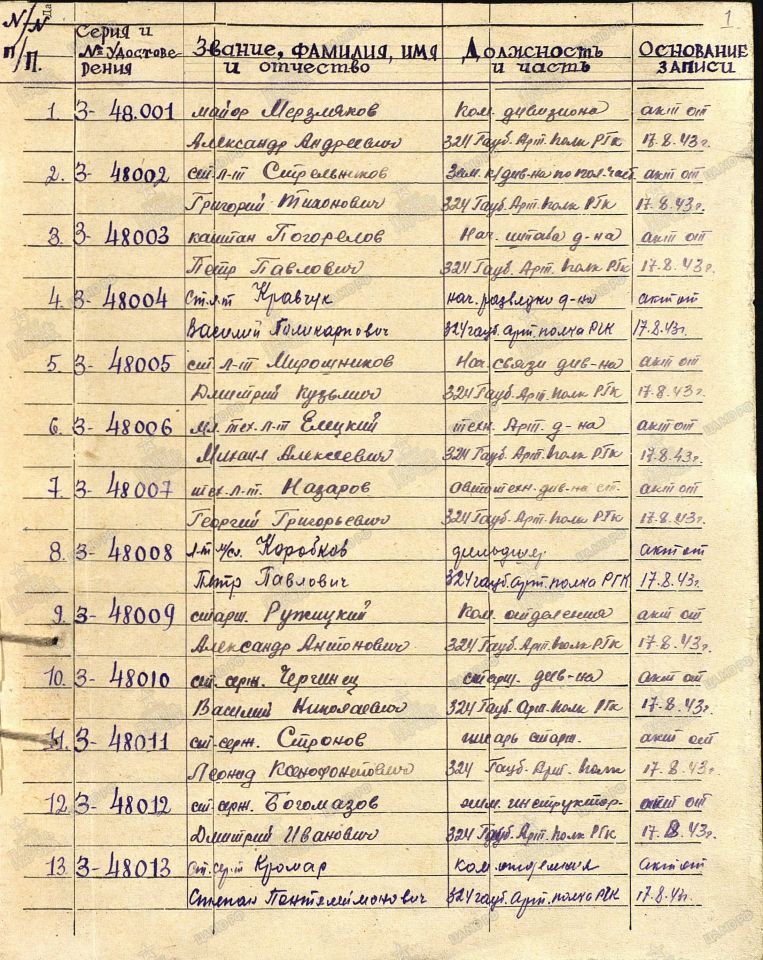 1
N/N п/п. Серия и № удостоверения Звание, фамилия, имя и отчество Должность и часть Основание записи
1. З- 48.001 майор Мерзляков Ком. дивизиона акт от
Александр Андреевич 324 Гауб. Арт. полк РГК 17.8.43г.
2. З- 48002 ст. л-т Стрельников Зам. к/див-на по пол.част. акт от
Григорий Тихонович 324 Гауб. Арт. полк РГК 17.8.43г.
3. З- 48003 капитан Погорелов Нач. штаба д-на акт от
Петр Павлович 324 Гауб. Арт. полк РГК 17.8.43г.
4. З- 48004 Ст. л-т Кравчук нач. разведки д-на акт от
Василий Поликарпович 324 гауб. арт. полка РГК 17.8.43г.
5. З- 48005 ст. л-т Мирошников Нач. связи див-на акт от
Дмитрий Кузьмич 324 Гауб. Арт. полк РГК 17.8.43г.
6. З- 48006 мл. тех. л-т Елецкий техн. Арт. д-на акт от
Михаил Алексеевич 324 Гауб. Арт. полк РГК 17.8.43г.
7. З- 48007 тех. л-т. Назаров автотехн. див-на ст. акт от
Георгий Григорьевич 324 Гауб. Арт. полк РГК 17.8.43г.
8. З- 48008 л-т м/сл. Коробков акт от
Петр Павлович 324 гауб. арт. полка РГК 17.8.43г.
9. З- 48009 старш. Ружицкий Ком. отделения акт от
Александр Антонович 324 Гауб. Арт. полк РГК 17.8.43г.
10. З- 48010 ст. серж. Чергинец старш. див-на акт от
Василий Николаевич 324 Гауб. Арт. полк РГК 17.8.43г.
11. З- 48011 ст. серж. Стронов писарь старш. акт от
Леонид Ксенофонтович 324 Гауб. Арт. полк 17.8.43г.
12 З- 48012 ст. серж. Богомазов хим. инструктор. акт от
Дмитрий Иванович 324 Гауб. Арт. полк РГК 17.8.43г.
13. З- 48013 Ст. сер-т Кромар ком. отделения акт от
Степан Пантелимонович 324 гауб. арт. полка РГК 17.8.43г.